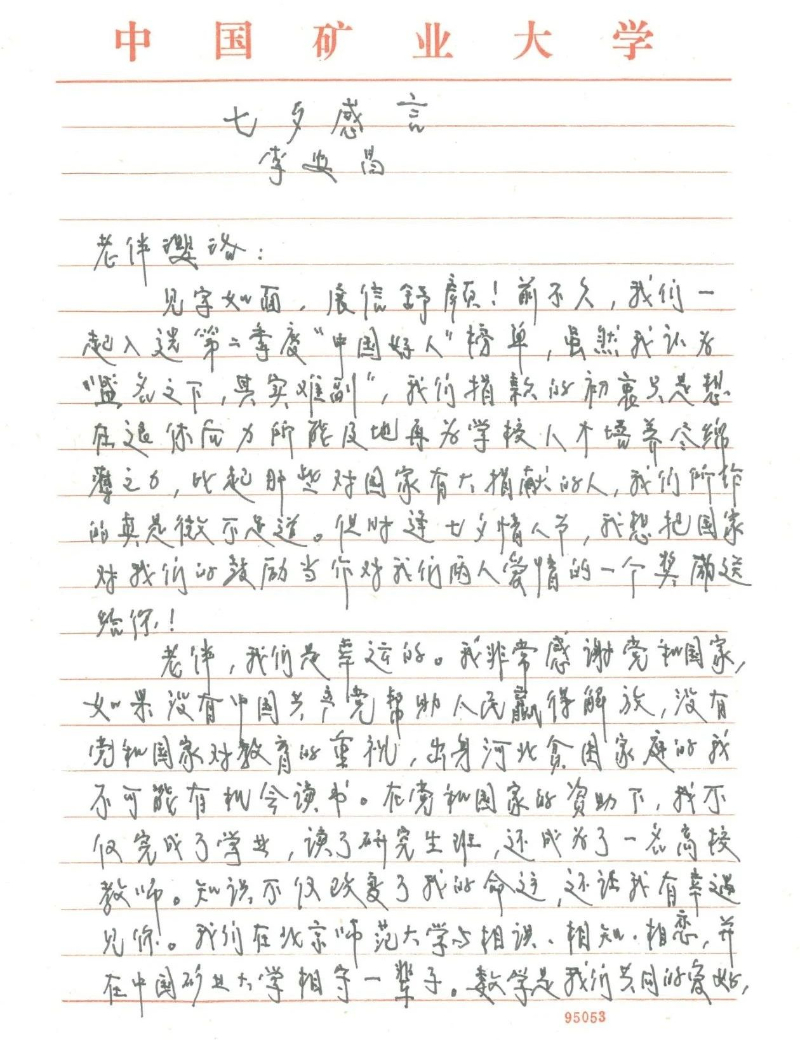 中国矿业大学
七夕感言
李安昌
老伴：
见字如面，展信舒颜！前不久，我们一
起入选第二季度“中国好人”榜单，虽然我认为
“盛名之下，其实难副”，我们捐款的初衷只是想
在退休后力所能及地再为学校人才培养尽绵
薄之力，比起那些对国家有大捐献的人，我们所作
的真是微不足道。但时逢七夕情人节，我想把国家
对我们的鼓励当作对我们两人爱情的一个奖励送
给你！
老伴，我们是幸运的。我非常感谢党和国家，
如果没有中国共产党帮助人民赢得解放，没有
党和国家对教育的重视，出身河北贫困家庭的我
不可能有机会读书。在党和国家的资助下，我不
仅完成了学业，读了研究生班，还成为了一名高校
教师。知识不仅改变了我的命运，还让我有幸遇
见你。我们在北京师范大学相识、相知、相恋，并
在中国矿业大学相守一辈子。数学是我们共同的爱好，
95053